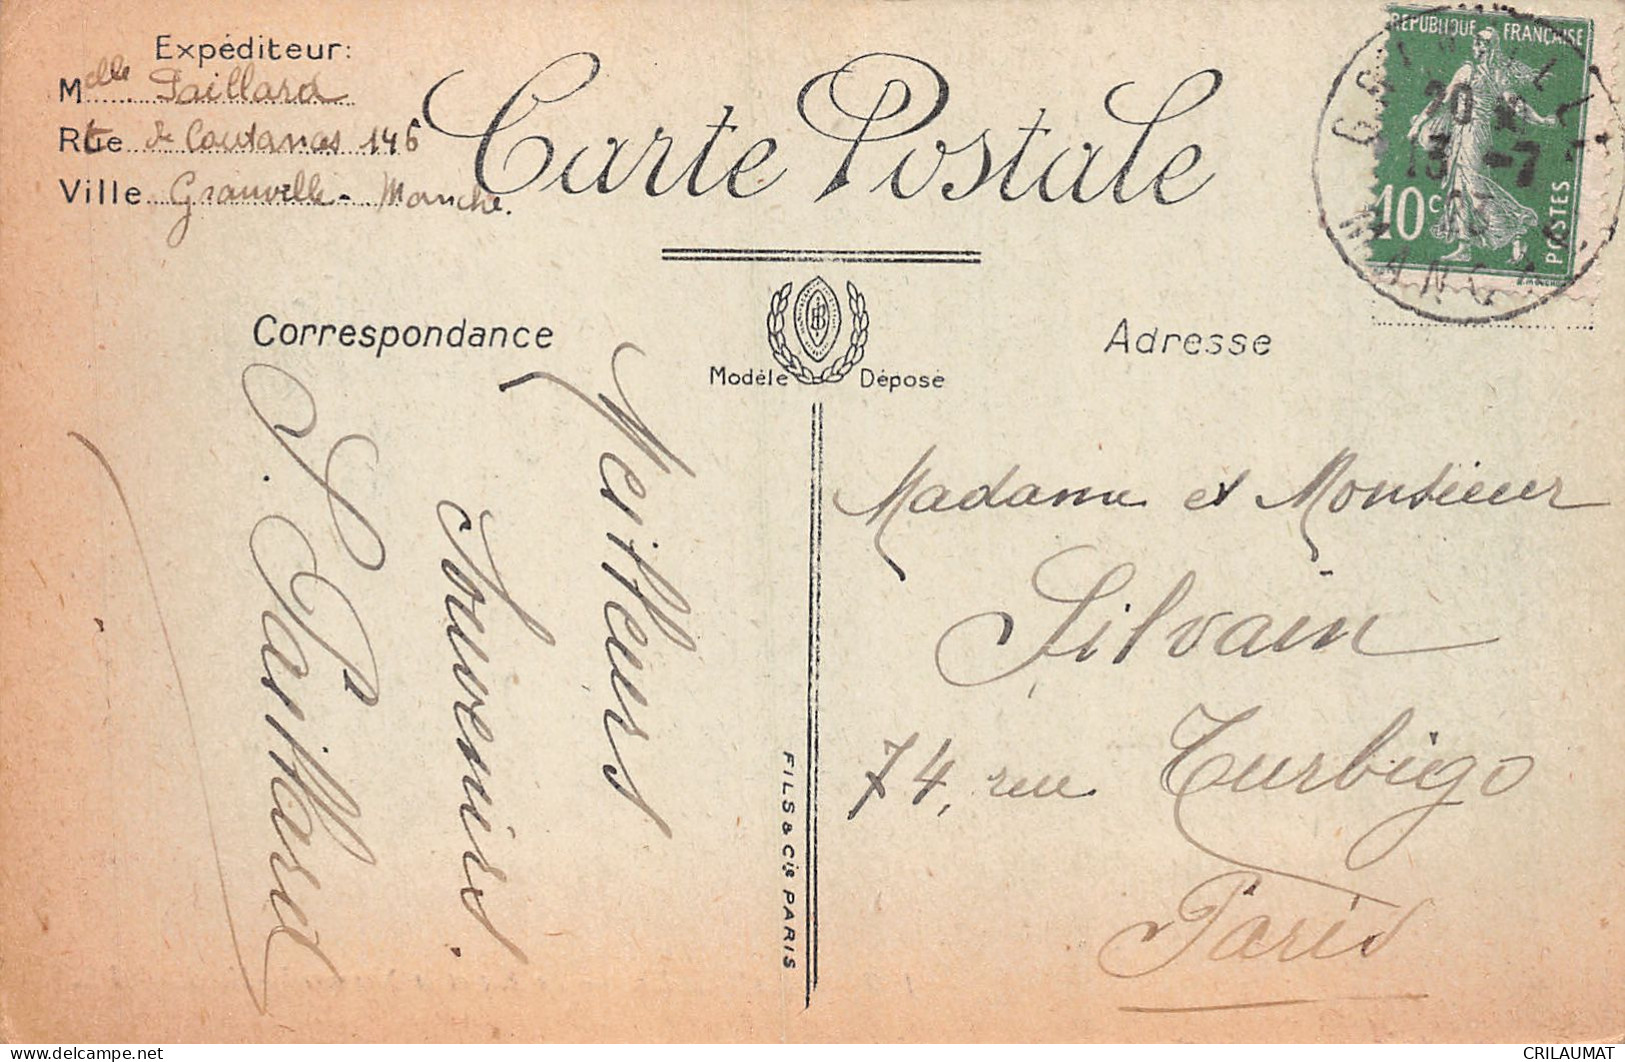 Expéditeur:
Melle Paillard
Rte de Coutances 146
Ville Granville - Manche.
Carte Postale
REPUBLIQUE FRANÇAISE
10c
POSTES
GRANVILLE
20
13 -7
MANCHE
Correspondance
Modèle Déposé
Adresse
Meilleurs
Souvenirs
S. Paillard
FILS & Cie PARIS
Madame et Monsieur
Silvain
74, rue Turbigo
Paris
CRILAUMAT